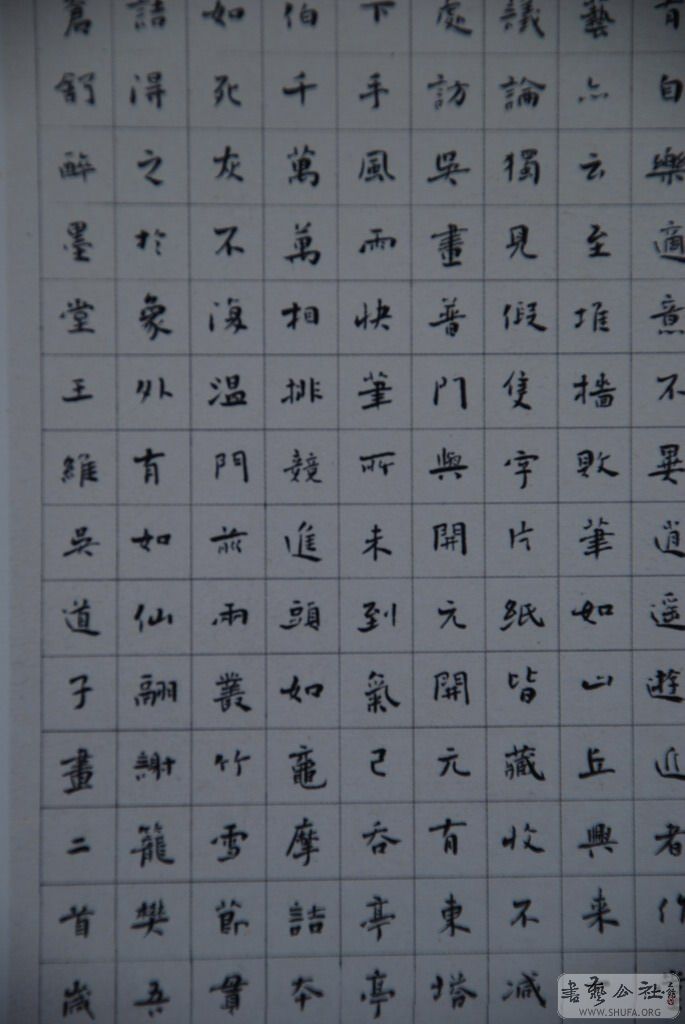 有自樂適意不異逍遙遊近者作
藝亦云至堆墻敗筆如山丘興来
議論獨見假隻字片紙皆藏收不減
處訪吳畫普門與開元開元有東塔
下手風雨快筆所未到氣已吞亭亭
伯千萬萬相排競進頭如黿摩詰本
如死灰不復温門前兩叢竹雪節貫
詰得之於象外有如仙翮謝籠樊吾
蒼舒醉墨堂王維吳道子畫二首歲
書藝公社
WWW.SHUFA.ORG